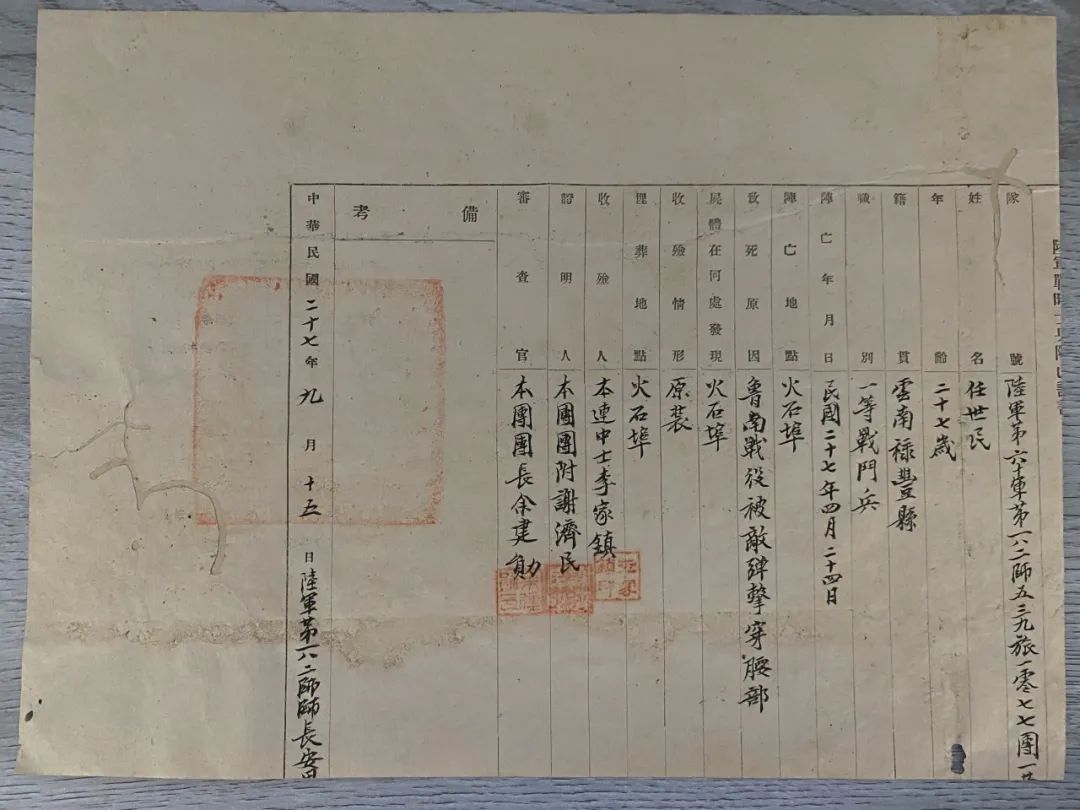 隊號 陸軍第六十軍第一八二師五三九旅一零七七團一
姓名 任世民
年齡 二十七歲
籍貫 雲南祿豐縣
職別 一等戰鬥兵
陣亡年月日 民國二十七年四月二十四日
陣亡地點 火石埠
致死原因 魯南戰役被敵彈擊穿腰部
屍體在何處發現 火石埠
收殮情形 原裝
埋葬地點 火石埠
收殮人 本連中士李家鎮
證明人 本團團附謝濟民
審查官 本團團長余建勛
備考
中華民國二十七年九月十五日陸軍第一八二師師長安